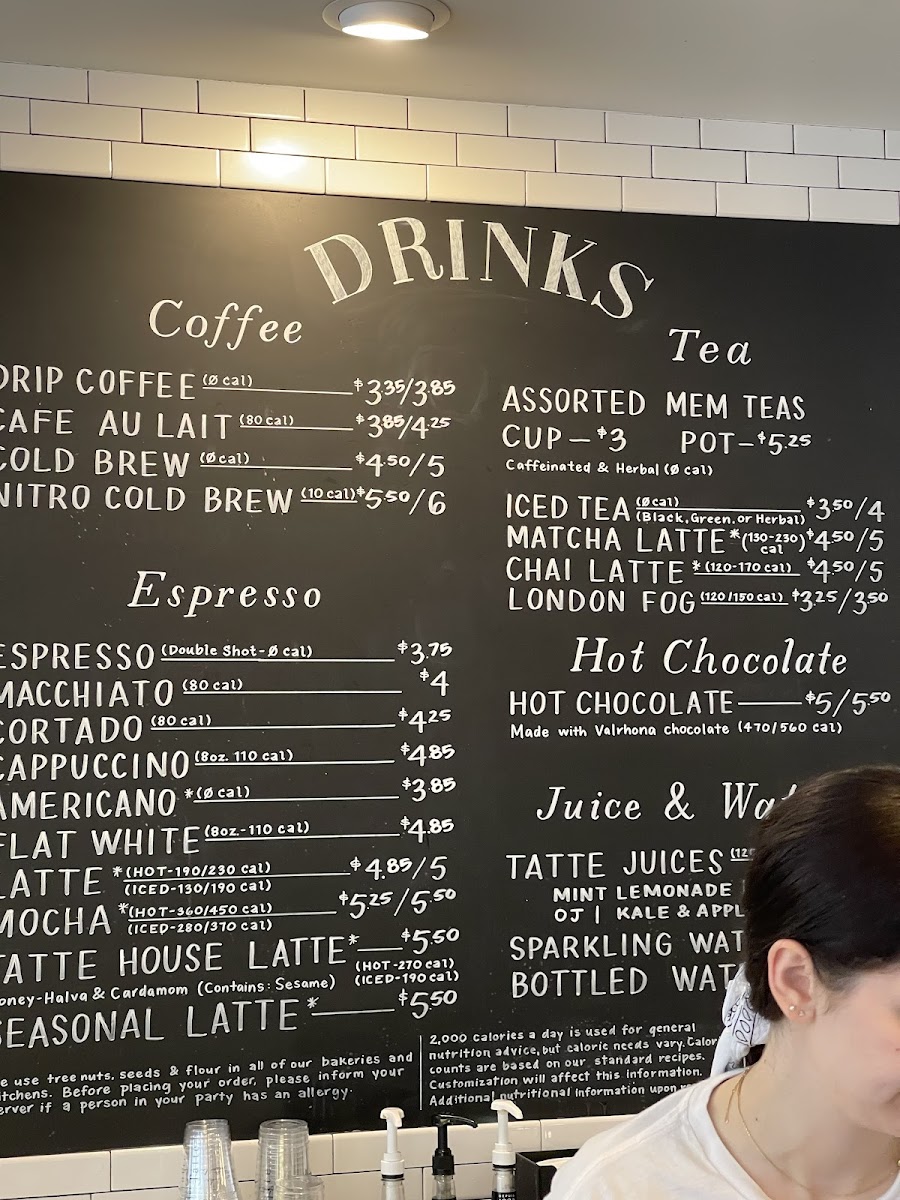 DRINKS
Coffee
DRIP COFFEE (Ø cal) $3.35/3.85
CAFE AU LAIT (80 cal) $3.85/4.25
COLD BREW (Ø cal) $4.50/5
NITRO COLD BREW (10 cal) $5.50/6
Espresso
ESPRESSO (Double Shot-Ø cal) $3.75
MACCHIATO (80 cal) $4
CORTADO (80 cal) $4.25
CAPPUCCINO (8oz. 110 cal) $4.85
AMERICANO *(Ø cal) $3.85
FLAT WHITE (8oz.-110 cal) $4.85
LATTE *(HOT-190/230 cal) $4.85/5
(ICED-130/190 cal)
MOCHA *(HOT-360/450 cal) $5.25/5.50
(ICED-280/370 cal)
TATTE HOUSE LATTE* $5.50
(HOT-270 cal)
oney-Halva & Cardamom (Contains: Sesame) (ICED-190 cal)
SEASONAL LATTE* $5.50
e use tree nuts, seeds & flour in all of our bakeries and
itchens. Before placing your order, please inform your
erver if a person in your party has an allergy.
Tea
ASSORTED MEM TEAS
CUP-$3 POT-$5.25
Caffeinated & Herbal (Ø cal)
ICED TEA (Ø cal) $3.50/4
(Black, Green, or Herbal)
MATCHA LATTE *(130-230) $4.50/5
cal
CHAI LATTE *(120-170 cal) $4.50/5
LONDON FOG (120/150 cal) $3.25/3.50
Hot Chocolate
HOT CHOCOLATE $5/5.50
Made with Valrhona chocolate (470/560 cal)
Juice & Wat
TATTE JUICES
MINT LEMONADE
OJ | KALE & APPL
SPARKLING WAT
BOTTLED WAT
2,000 calories a day is used for general
nutrition advice, but calorie needs vary. Calor
counts are based on our standard recipes.
Customization will affect this information.
Additional nutritional information upon